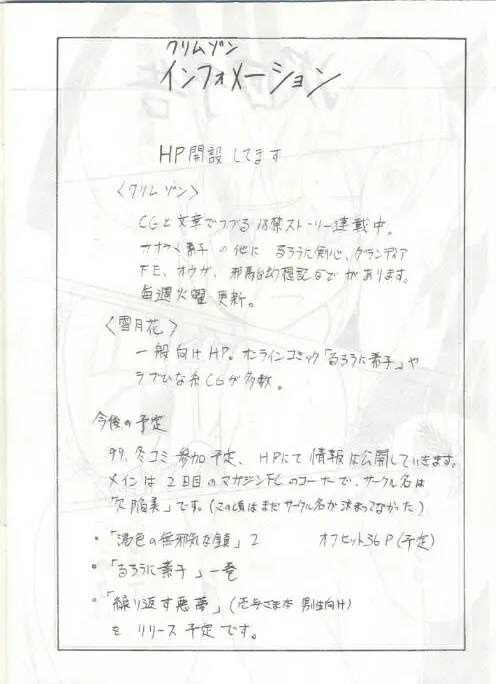 クリムゾン
インフォメーション
HP開設してます
〈クリムゾン〉
CGと文章でつづる18禁ストーリー連載中。
カナタ、素子の他に るろうに剣心、グランディア
FE、オウガ、邪馬台幻想記などがあります。
毎週火曜更新。
〈雪月花〉
一般向けHP。オンラインコミック「るろうに素子」や
ラブひな系CGが多数。
今後の予定
99.冬コミ参加予定、HPにて情報は公開していきます。
メインは2日目のマガジンFCのコーナーで、サークル名は
「欠陥美」です。(この頃はまだサークル名が決まってなかった)
・「褐色の無邪気な鎖」2 オフセット36P(予定)
・「るろうに素子」一巻
・「繰り返す悪夢」(壱与さま本 男性向け)
を リリース予定です。